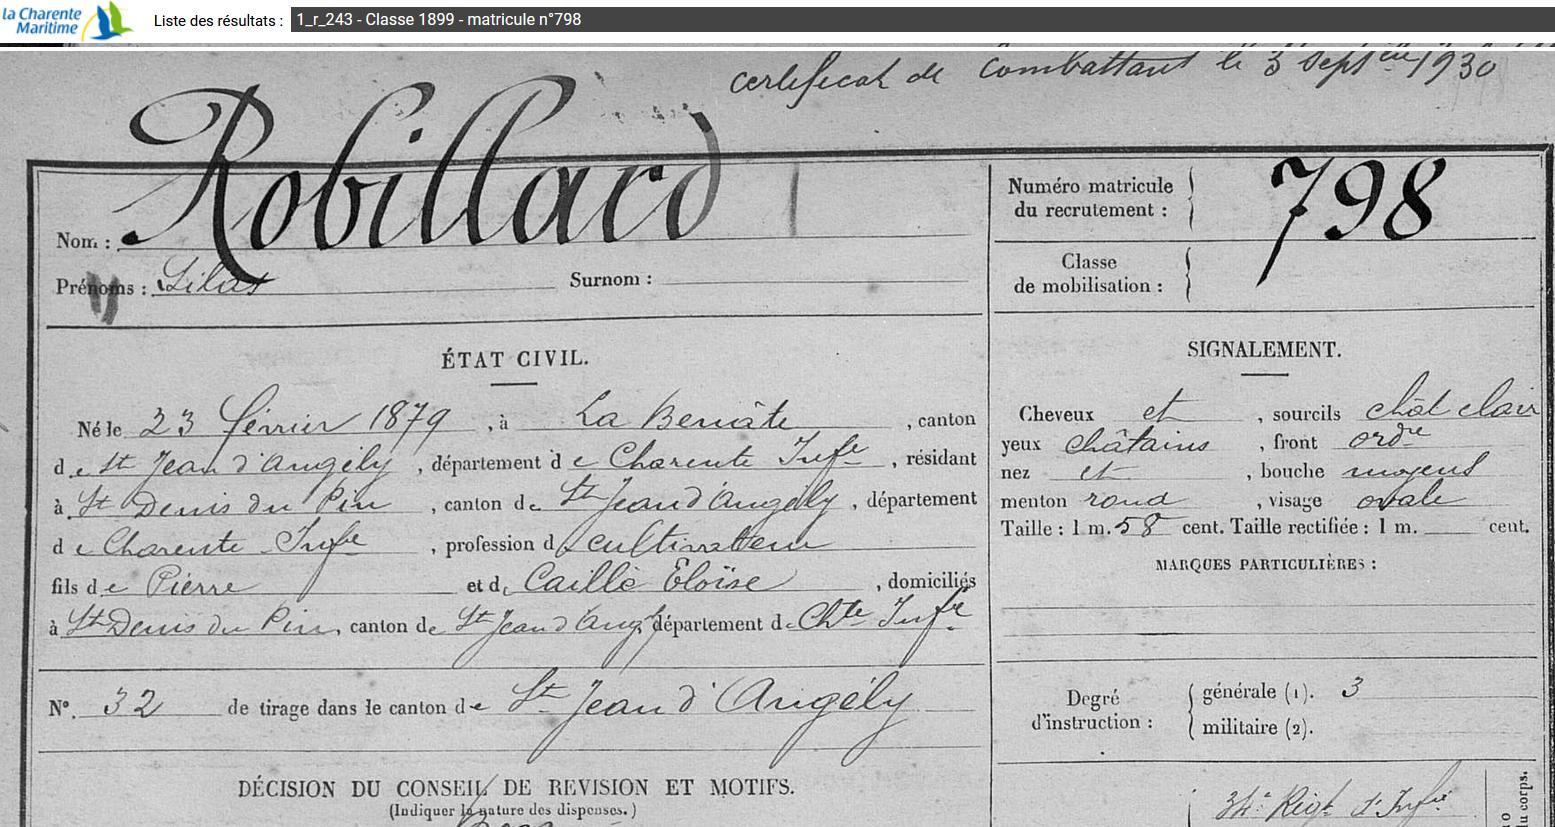 la Charente
Maritime
Liste des résultats : 1_r_243 - Classe 1899 - matricule n°798
certificat de combattant le 3 Sept 1930
Nom : Robillard
Prénoms : Silas Surnom :
Numéro matricule
du recrutement : 798
Classe
de mobilisation :
ÉTAT CIVIL.
Né le 23 février 1879, à La Benâte, canton
de St Jean d'Angély, département de Charente Infre, résidant
à St Denis du Pin, canton de St Jean d'Angély, département
de Charente Infre, profession d cultivateur
fils de Pierre et de Caillé Éloïse, domiciliés
à St Denis du Pin, canton de St Jean d'Ang département de Chte Infre
N°. 32 de tirage dans le canton de St Jean d'Angély
DÉCISION DU CONSEIL DE REVISION ET MOTIFS.
(Indiquer la nature des dispenses.)
SIGNALEMENT.
Cheveux et, sourcils chât clair
yeux châtains, front ordre
nez et, bouche moyens
menton rond, visage ovale
Taille : 1 m. 58 cent. Taille rectifiée : 1 m. cent.
MARQUES PARTICULIÈRES :
Degré
d'instruction :
générale (1). 3
militaire (2).
Régt d'Infie
du corps.